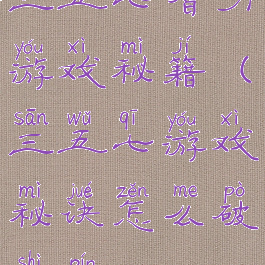 yóu xì mì jí
游戏秘籍（
sān wǔ qī yóu xì
三五七游戏
mì jué zěn me pò
秘诀怎么破